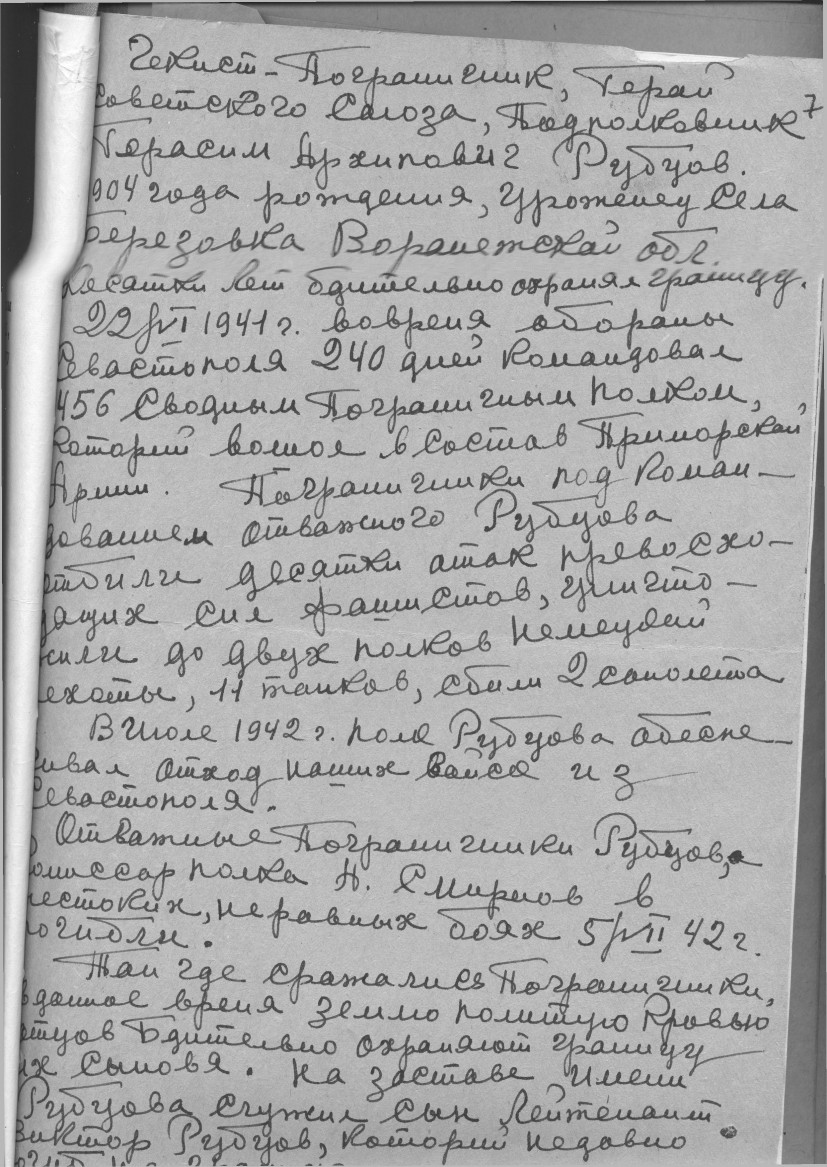 Чекист-Пограничник, Герай
Советского Союза, Подполковник
7
Герасим Архипович Рубцов.
904 года рождения, Урженец Села
Березовка Воранежскай обл.
Десятки лет бдительно охранял границу.
22/VI 1941 г. вовреня обораны
Севастополя 240 дней Командовал
456 Сводным Пограничным полком,
Который вошол в Состав Приморскай
Армии. Пограничники под Коман-
дованием отважного Рубцова
отбили десятки атак превосхо-
дащих сил фашистов, уничто-
жили до двух полков Немецкай
пехоты, 11 танков, сбили 2 самолета
В Июле 1942 г. полк Рубцова абеспе-
чивал Отход наших вайск из
Севастополя.
Отважные Пограничники Рубцов, а
Комиссар полка Н. Смирнов в
жестоких, неравных боях 5/VII 42 г.
погибли.
Там где сражались Пограничники,
в данное время землю политую Кровью
отцов Бдительно охраняют границу
их Сыновя. На заставе Имени
Рубцова служил сын Лейтенант
Виктор Рубцов, который недавно